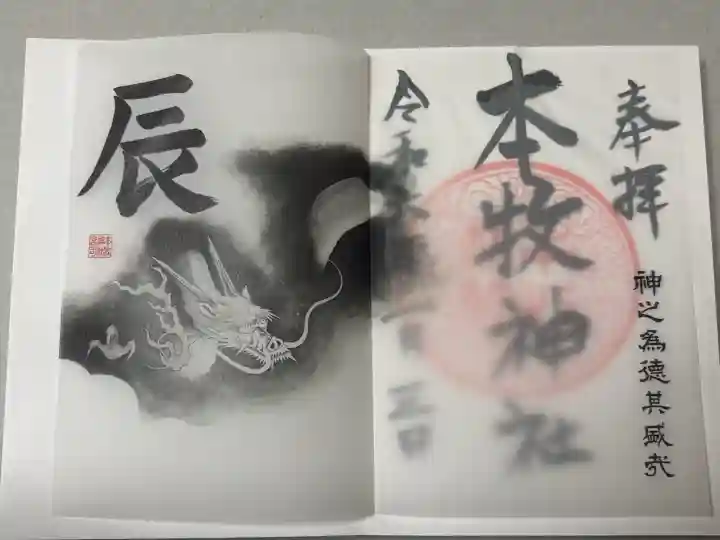 奉拝
神之為徳其盛哉
本牧神社
令和六年一月三日
辰